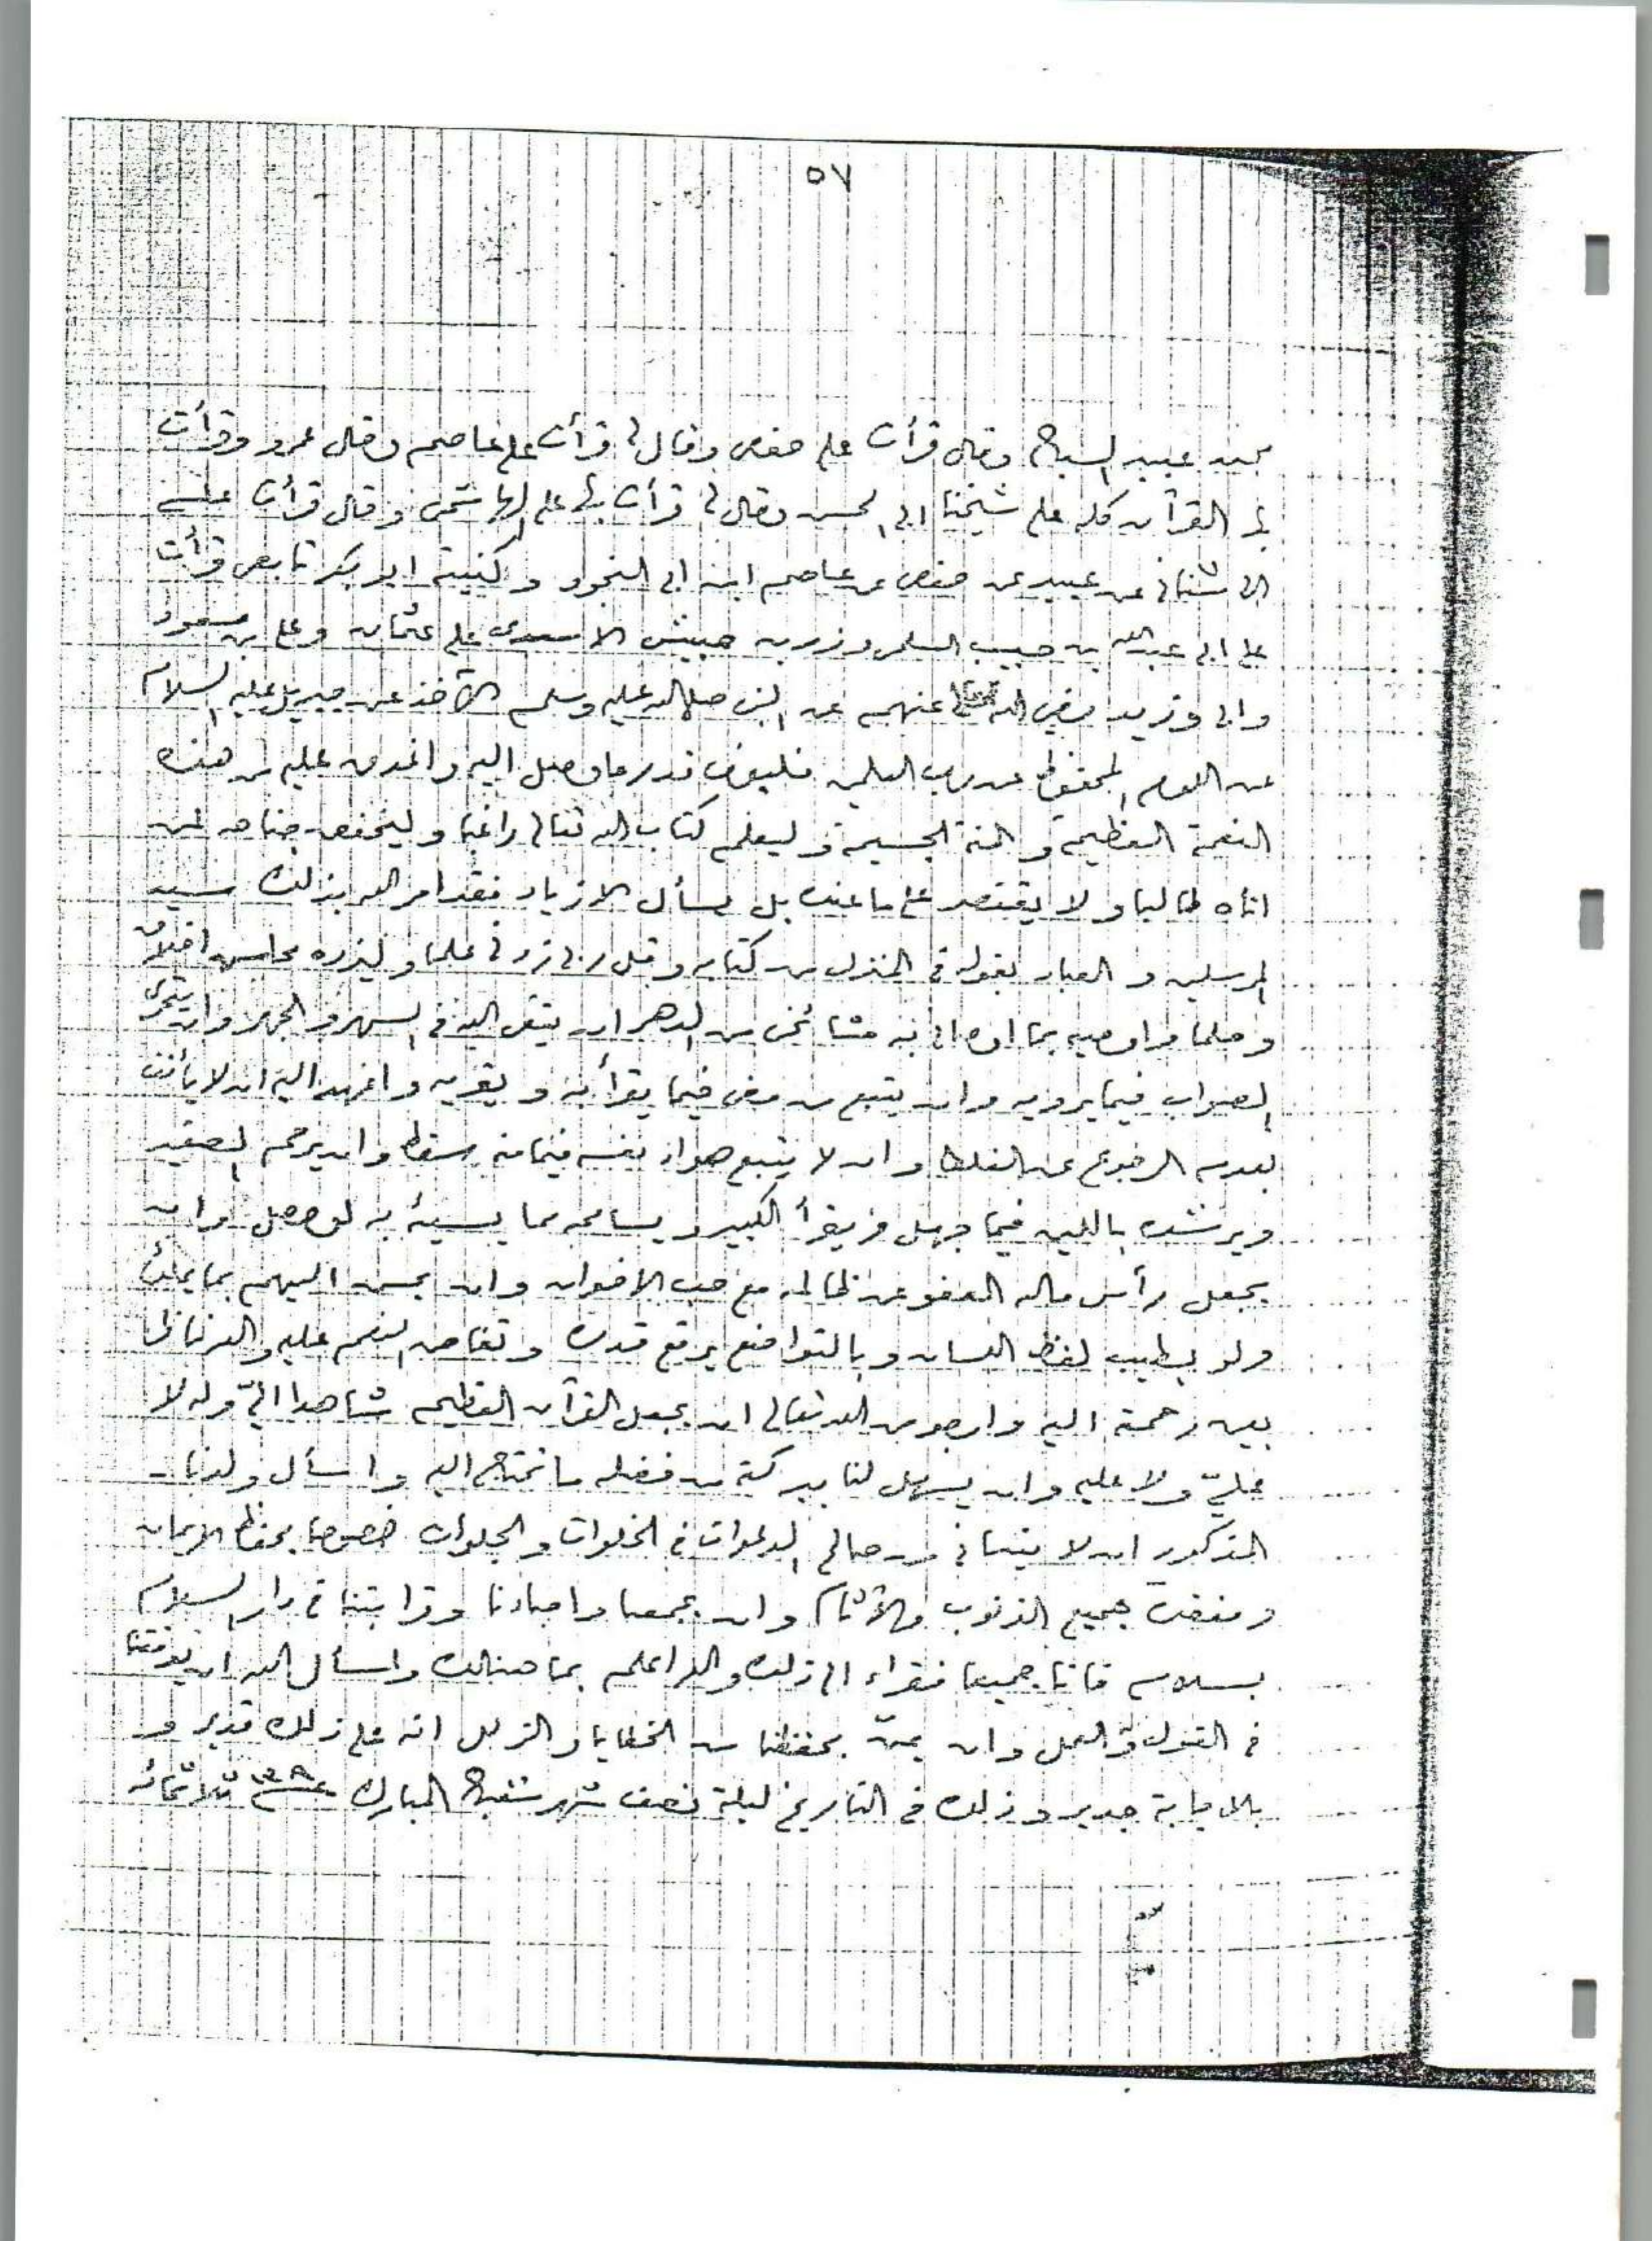 ٥٧
عبيد الصباح وقال قرأت على حفص وقال لي قرأت على عاصم وقال عمرو وقرأت
القرآن كله على شيخنا ابي الحسن وقال لي قرأت على الهاشمي وقال قرأت على
الاشناني عن عبيد عن حفص عن عاصم ابن ابي النجود وكنيته ابو بكر تابعي قرأت
على ابي عبدالله بن حبيب السلمي وزر بن حبيش الاسدي على عثمان وعلي بن مسعود
وابي وزيد رضي الله عنهم عن النبي صلى الله عليه وسلم الآخذ عن جبريل عليه السلام
عن اللوح المحفوظ عن رب العلمين قدر ما وصل اليه واغدق عليه من هذه
النعمة العظيمة والمنة الجسيمة وليعلم كتاب الله تعالى راغبا وليخفض جناحه لمن
اتاه طالبا ولا يقتصر على ما عنده بل يسأل الازدياد فقد امر الله بذلك سيد
المرسلين والعباد بقوله في المنزل من كتابه وقل ربي زدني علما وليزده محاسن اخلاق
وحلما واوصيه بما اوصاني به مشائخي من الدهر ان يتقي الله في السر والجهر وان يتحرى
الصواب فيما يرويه وان يتبع من مضى فيما يقرأ به ويقريه اليه ان لا يأنف
بعدم الرجوع عن الغلط وان لا يتبع هواء نفسه سقط وان يرحم الصغير
ويرشده باللين فيما جهل الكبير ويسامحه وان
يجعل رأس ماله العفو عن ظالمه مع حب الاخوان وان يحسن اليهم بما
ولو بطيب لفظ اللسان وبالتواضع يرقع قدره النعم عليه
بعين رحمة اليه وارجو من الله تعالى ان يجعل القرآن العظيم شاهدا الي وله لا
علي ولا عليه وان يسهل لنا ببركة من فضله ما نحتاج اليه واسأل ولدنا
المذكور ان لا ينساني من صالح الدعوات في الخلوات والجلوات خصوصا بحفظ الايمان
ومغفرة جميع الذنوب والآثام وان يجمعنا واحبابنا وقرابتنا في دار السلام
بسلام فاننا جميعا فقراء الى ذلك والله اعلم بما هنالك واسأل الله ان يوفقنا
في القول والعمل وان يمنّ بحفظنا من الخطايا والزلل انه على ذلك قدير و
بالاجابة جدير وذلك في التاريخ ليلة نصف شهر المبارك ثلاثمائه